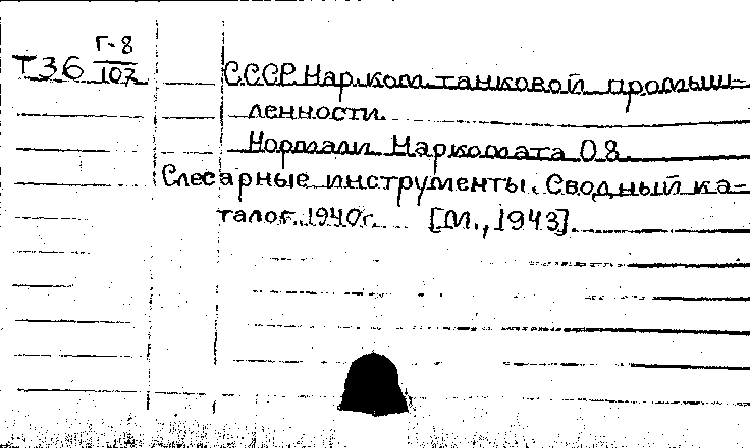 Г-8
Т36 107
СССР. Нар.ком. танковой промыш-
ленности.
Нормали Наркомата 08.
Слесарные инструменты. Сводный ка-
талог. 1940г. [М., 1943].